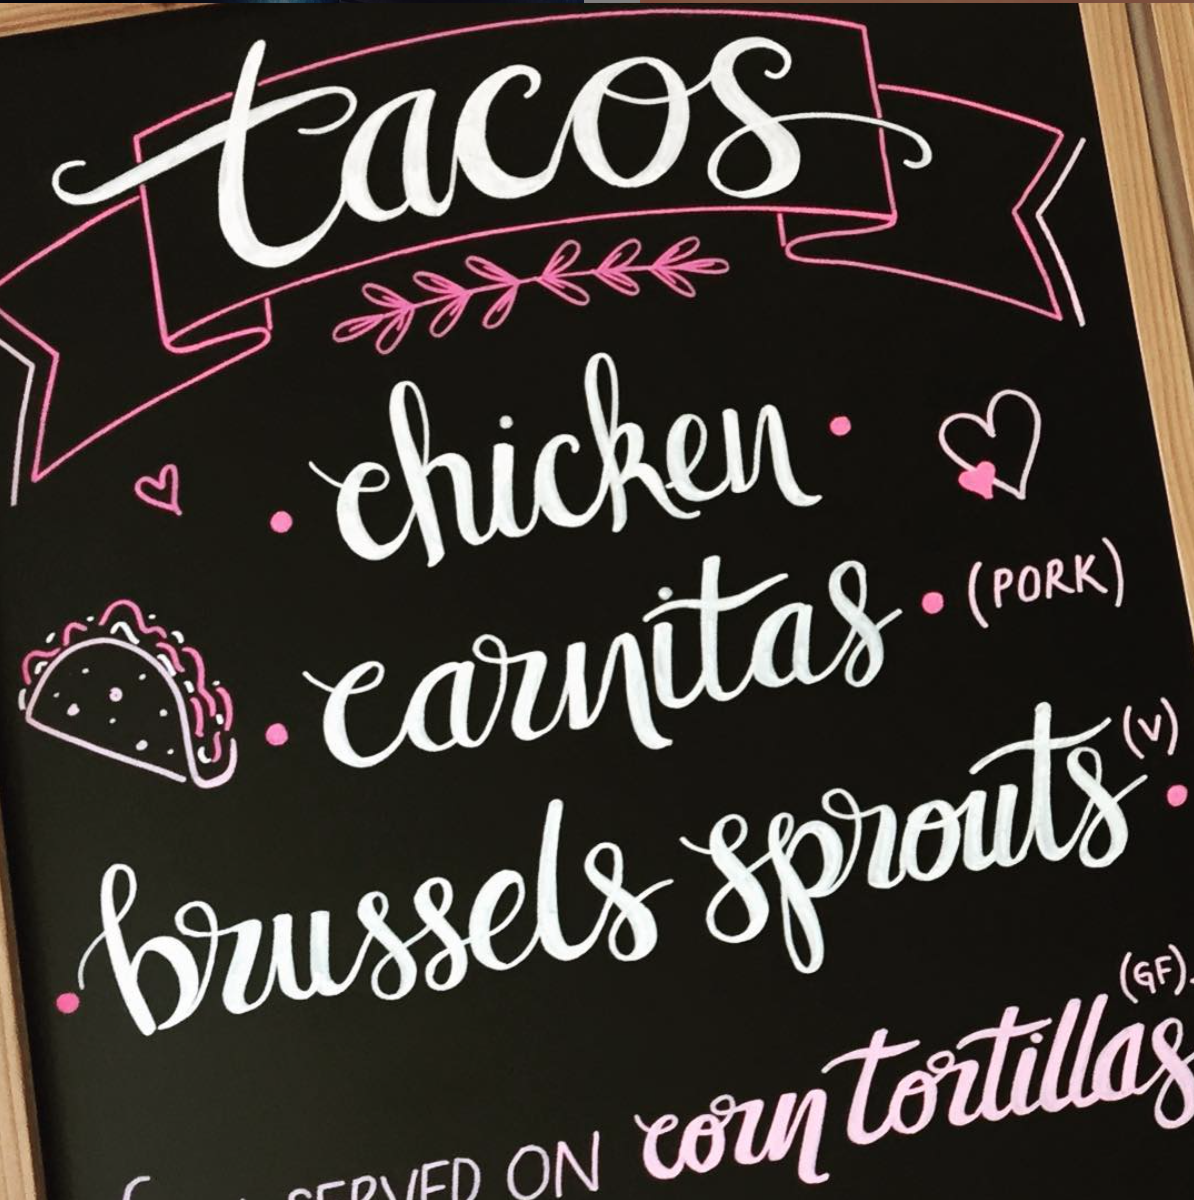 tacos
chicken
carnitas (PORK)
brussels sprouts (V)
SERVED ON corn tortillas (GF)